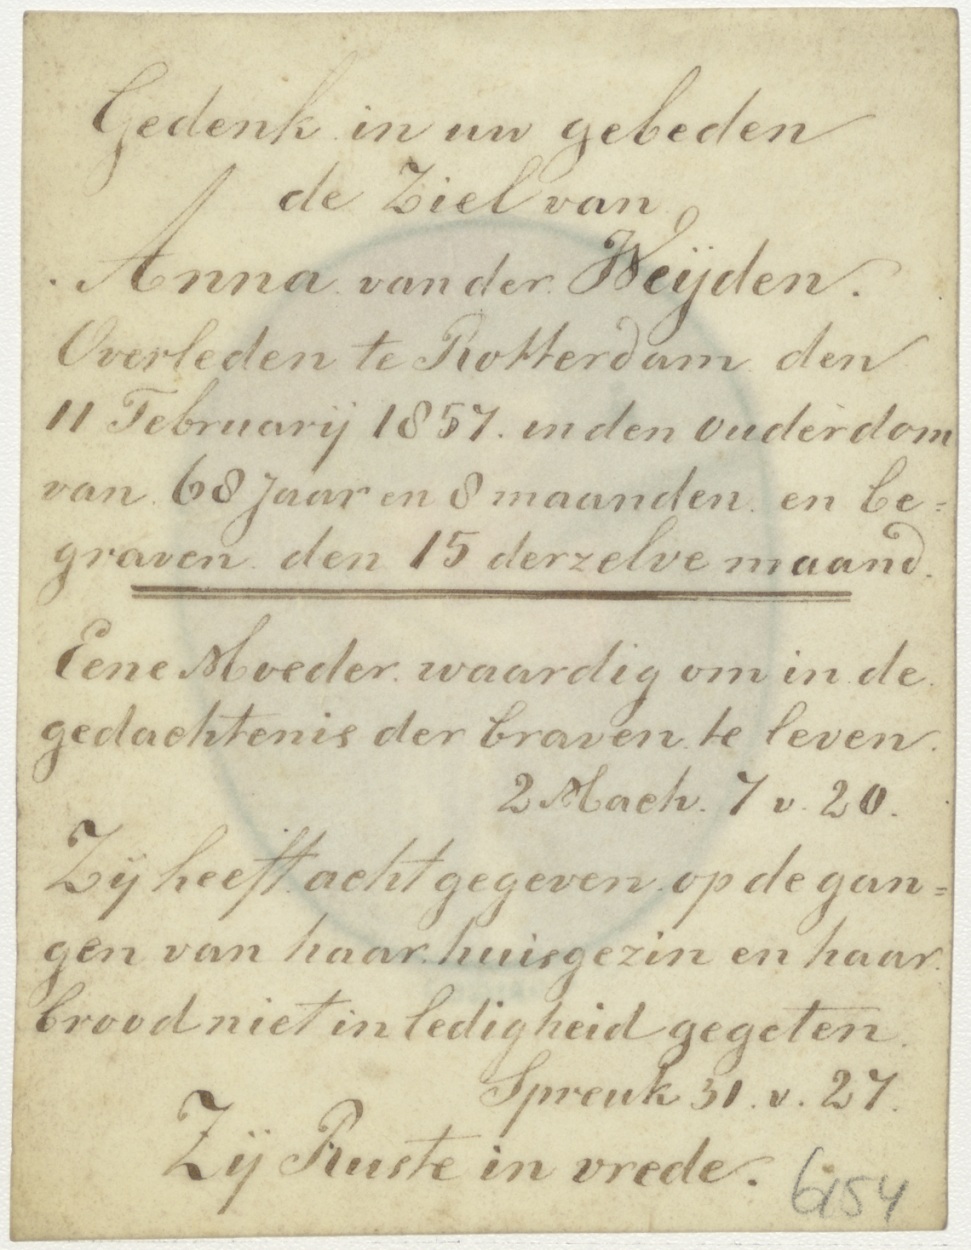 Gedenk in uw gebeden
de Ziel van
Anna van der Weijden.
Overleden te Rotterdam den
11 Februarij 1857. in den Ouderdom
van 68 Jaar en 8 maanden en be=
graven den 15 derzelve maand.
Eene Moeder waardig om in de
gedachtenis der braven te leven.
2 Mach. 7 v. 20.
Zij heeft acht gegeven op de gan=
gen van haar huisgezin en haar
brood niet in ledigheid gegeten.
Spreuk 31. v. 27.
Zij Ruste in vrede.
6154